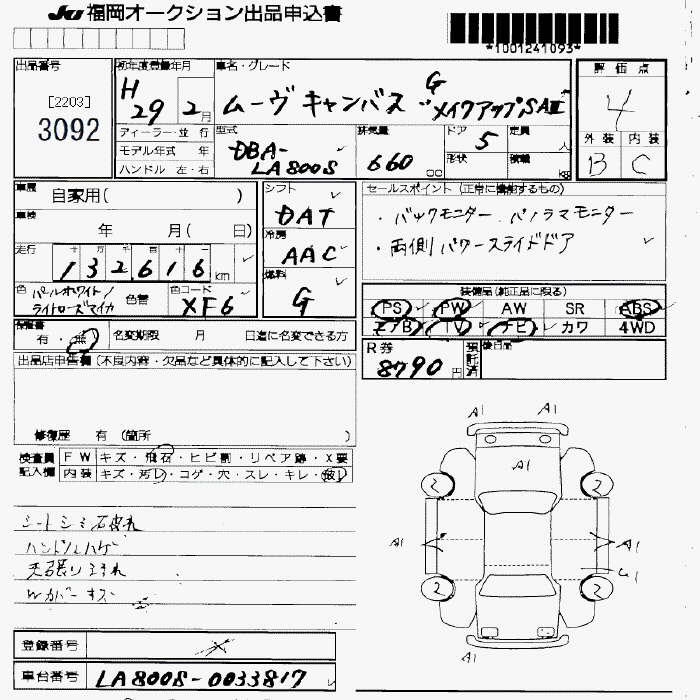 JU 福岡オークション出品申込書
*1001241093*
出品番号
[2203]
3092
初年度登録年月
H 29 2月
車名・グレード
ムーヴ キャンバス G
メイクアップSAⅡ
評価点
4
外装 内装
B C
ディーラー・並行
モデル年式 年
ハンドル 左・右
型式
DBA-
LA800S
排気量
660 cc
ドア 5
形状
定員 人
積載 kg
車歴
自家用( )
車検
年 月( 日)
走行
十 万 千 百 十 一
132,616 km
色
パールホワイト/
ライトローズマイカ
色替
色コード
XF6
シフト
DAT
冷房
AAC
燃料
G
セールスポイント (正常に機能するもの)
・バックモニター、パノラマモニター
・両側パワースライドドア
装備品(純正品に限る)
PS PW AW SR ABS
エアB TV ナビ カワ 4WD
保証書
有・無 名変期限 月 日迄に名変できる方
R券
8790円
預託済
後日品
出品店申告欄 (不良内容・欠品など具体的に記入して下さい)
修復歴 有 (箇所 )
検査員記入欄
FW キズ・飛石・ヒビ割・リペア跡・X要
内装 キズ・汚レ・コゲ・穴・スレ・キレ・破レ
シートシミ破れ
ハンドルハゲ
天張りよごれ
Wカバーキズ
A1 A1
A1
2 2
A1 A1
G1
2 2
A1
登録番号
車台番号 LA800S-0033817